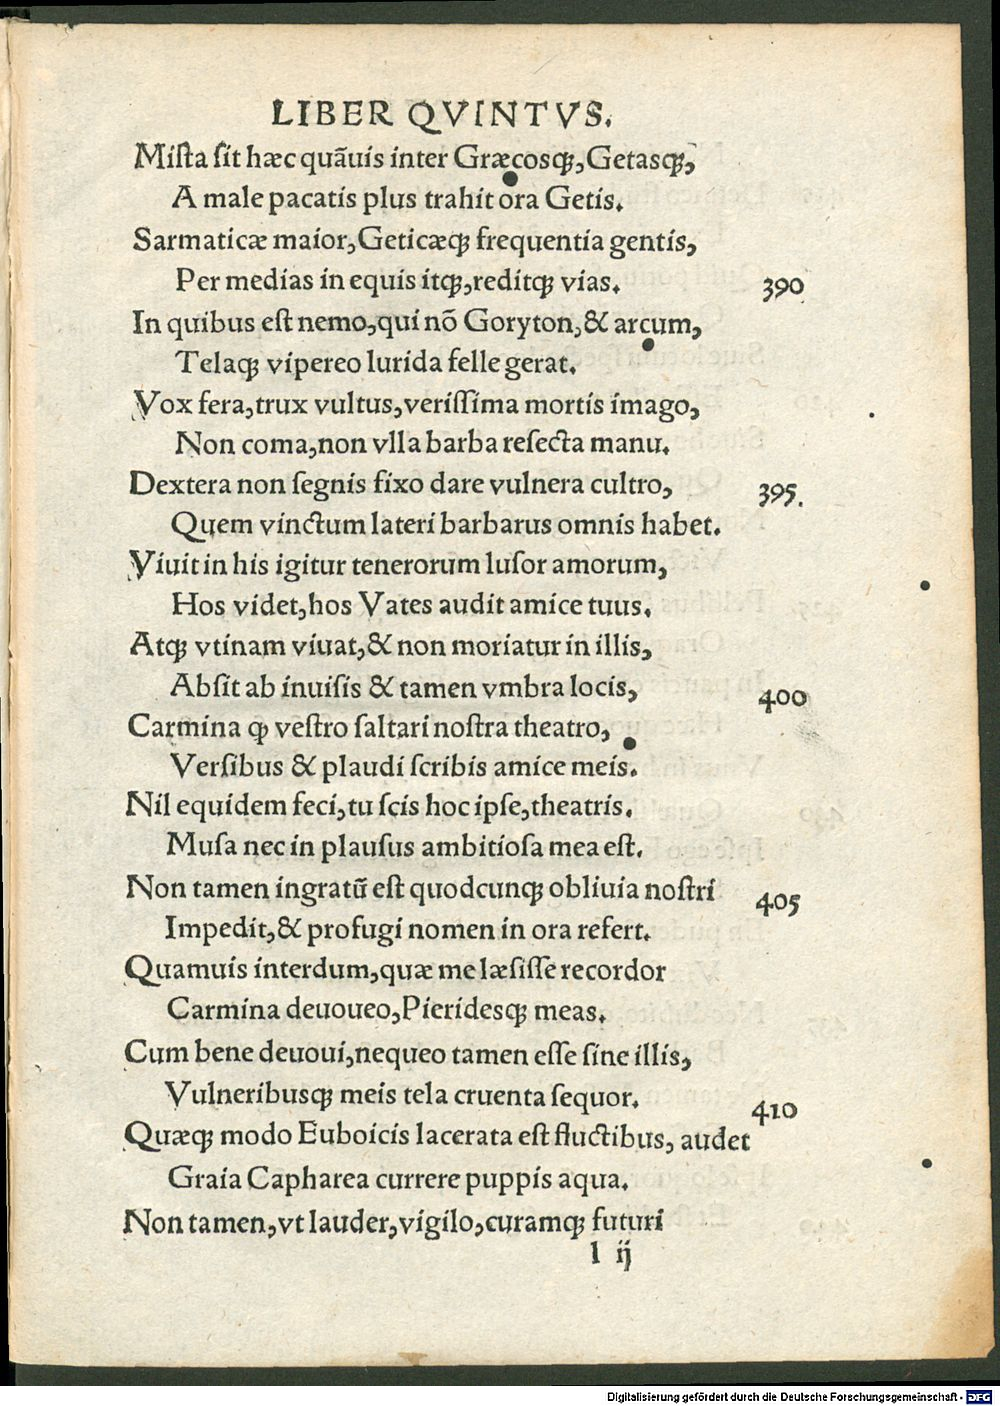 LIBER QVINTVS.
Mista sit hæc quāuis inter Græcosq;, Getasq;,
A male pacatis plus trahit ora Getis.
Sarmaticæ maior, Geticæq; frequentia gentis,
Per medias in equis itq;, reditq; vias. 390
In quibus est nemo, qui nō Goryton, & arcum,
Telaq; vipereo lurida felle gerat.
Vox fera, trux vultus, verissima mortis imago,
Non coma, non vlla barba resecta manu.
Dextera non segnis fixo dare vulnera cultro, 395.
Quem vinctum lateri barbarus omnis habet.
Viuit in his igitur tenerorum lusor amorum,
Hos videt, hos Vates audit amice tuus.
Atq; vtinam viuat, & non moriatur in illis,
Absit ab inuisis & tamen vmbra locis, 400
Carmina ꝙ vestro saltari nostra theatro,
Versibus & plaudi scribis amice meis.
Nil equidem feci, tu scis hoc ipse, theatris.
Musa nec in plausus ambitiosa mea est.
Non tamen ingratū est quodcunq; obliuia nostri 405
Impedit, & profugi nomen in ora refert.
Quamuis interdum, quæ me læsisse recordor
Carmina deuoueo, Pieridesq; meas.
Cum bene deuoui, nequeo tamen esse sine illis,
Vulneribusq; meis tela cruenta sequor. 410
Quæq; modo Euboicis lacerata est fluctibus, audet
Graia Capharea currere puppis aqua.
Non tamen, vt lauder, vigilo, curamq; futuri
l ij
Digitalisierung gefördert durch die Deutsche Forschungsgemeinschaft - DFG